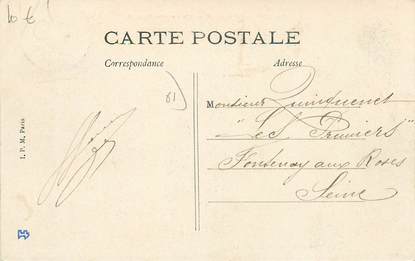 10 €
CARTE POSTALE
Correspondance
Adresse
81
Monsieur Quinquenet
"Les Pruniers"
Fontenay aux Roses
Seine
I. P. M. Paris